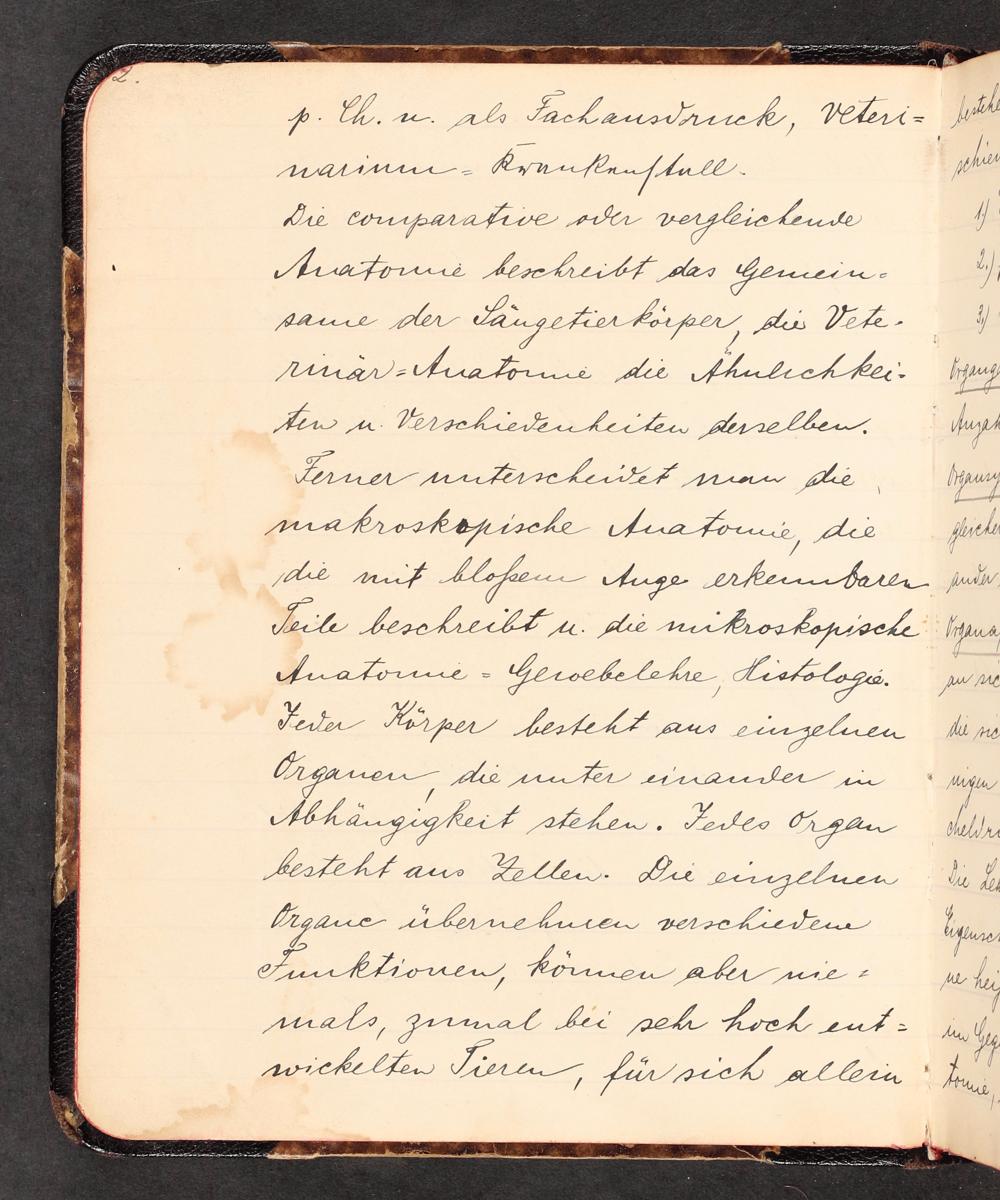 2.
p. Ch. u. als Fachausdruck, Veteri=
narium = Krankenstall.
Die comparative oder vergleichende
Anatomie beschreibt das Gemein=
same der Säugetierkörper, die Vete=
rinär=Anatomie die Ähnlichkei=
ten u. Verschiedenheiten derselben.
Ferner unterscheidet man die
makroskopische Anatomie, die
die mit bloßem Auge erkennbaren
Teile beschreibt u. die mikroskopische
Anatomie = Gewebelehre, Histologie.
Jeder Körper besteht aus einzelnen
Organen, die unter einander in
Abhängigkeit stehen. Jedes Organ
besteht aus Zellen. Die einzelnen
Organe übernehmen verschiedene
Funktionen, können aber nie=
mals, zumal bei sehr hoch ent=
wickelten Tieren, für sich allein
bestehe
schien
1.)
2.)
3.)
Organg
Anzah
Organsy
gleicher
ander.
Organa
an sic
die sic
nigen
Die Leh
Eigensc
ne hei
im Geg
tomie,